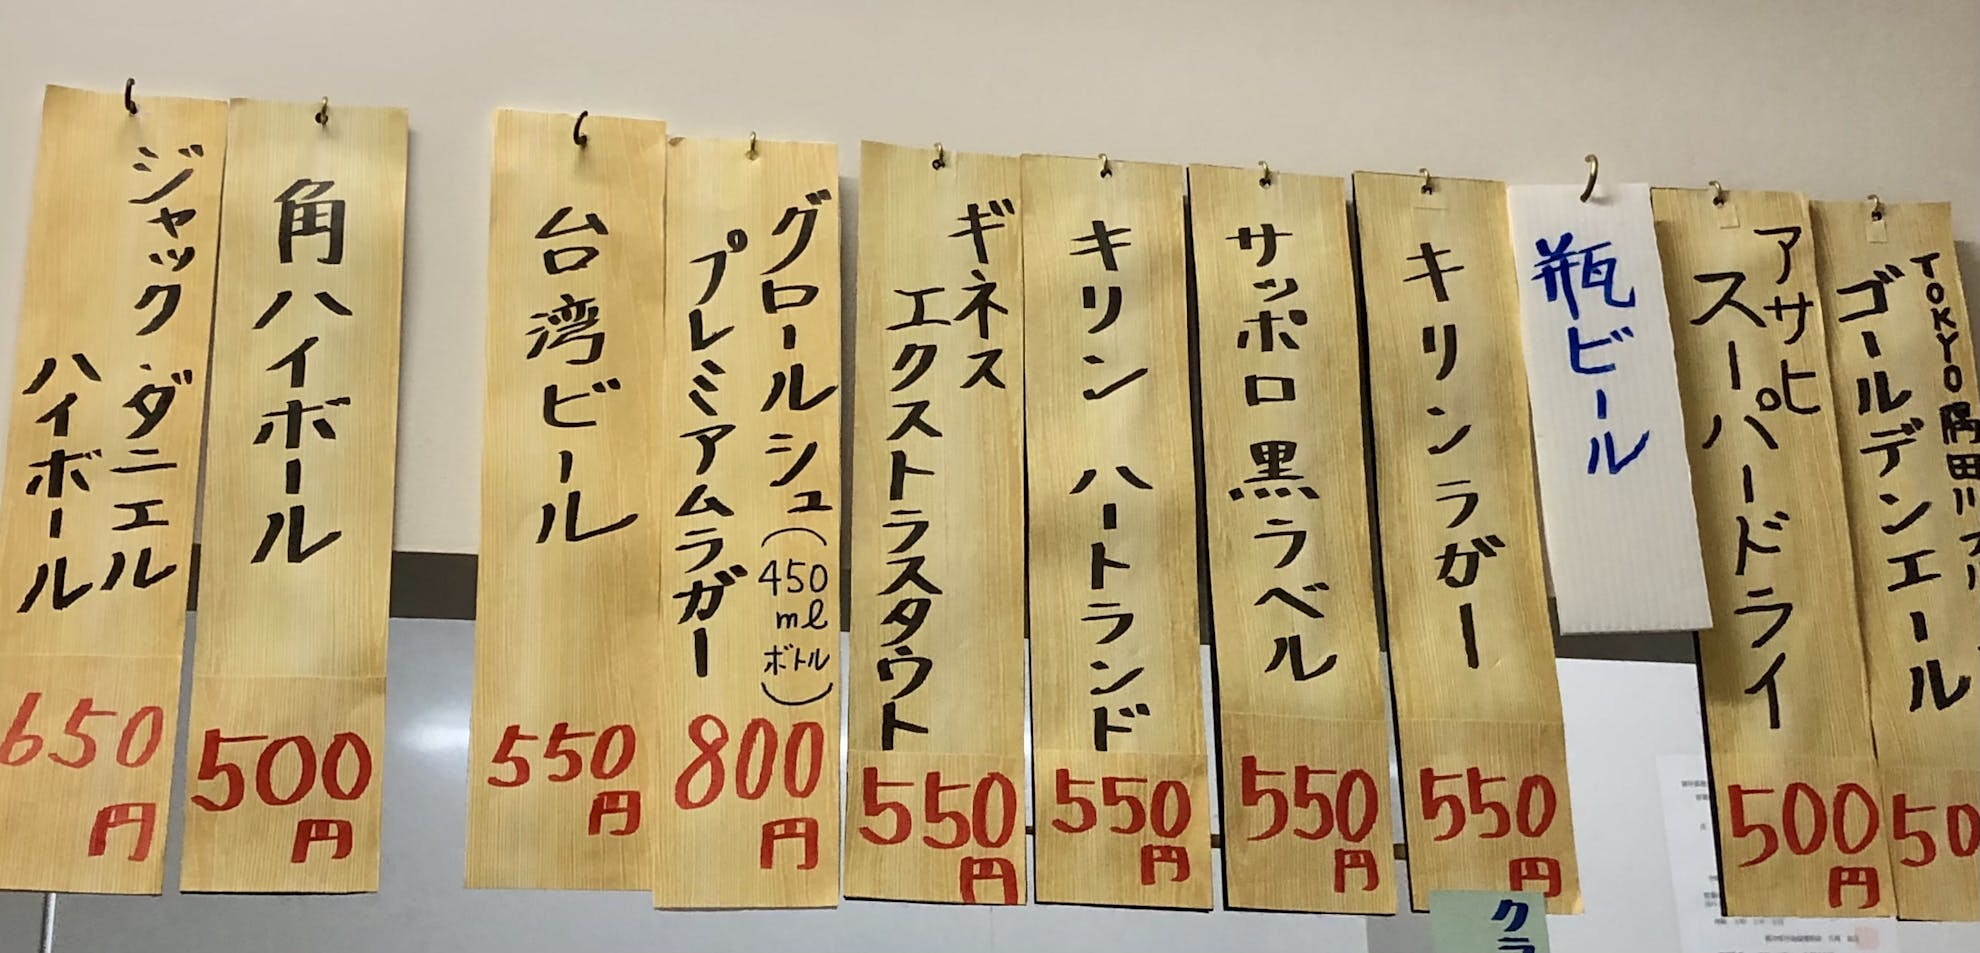 TOKYO隅田川
ゴールデンエール
50
アサヒ
スーパードライ
500
円
瓶ビール
キリンラガー
550
円
クラ
サッポロ黒ラベル
550
円
キリン ハートランド
550
円
ギネス
エクストラスタウト
550
円
グロールシュ(450mlボトル)
プレミアムラガー
800
円
台湾ビール
550
円
角ハイボール
500
円
ジャック・ダニエル
ハイボール
650
円